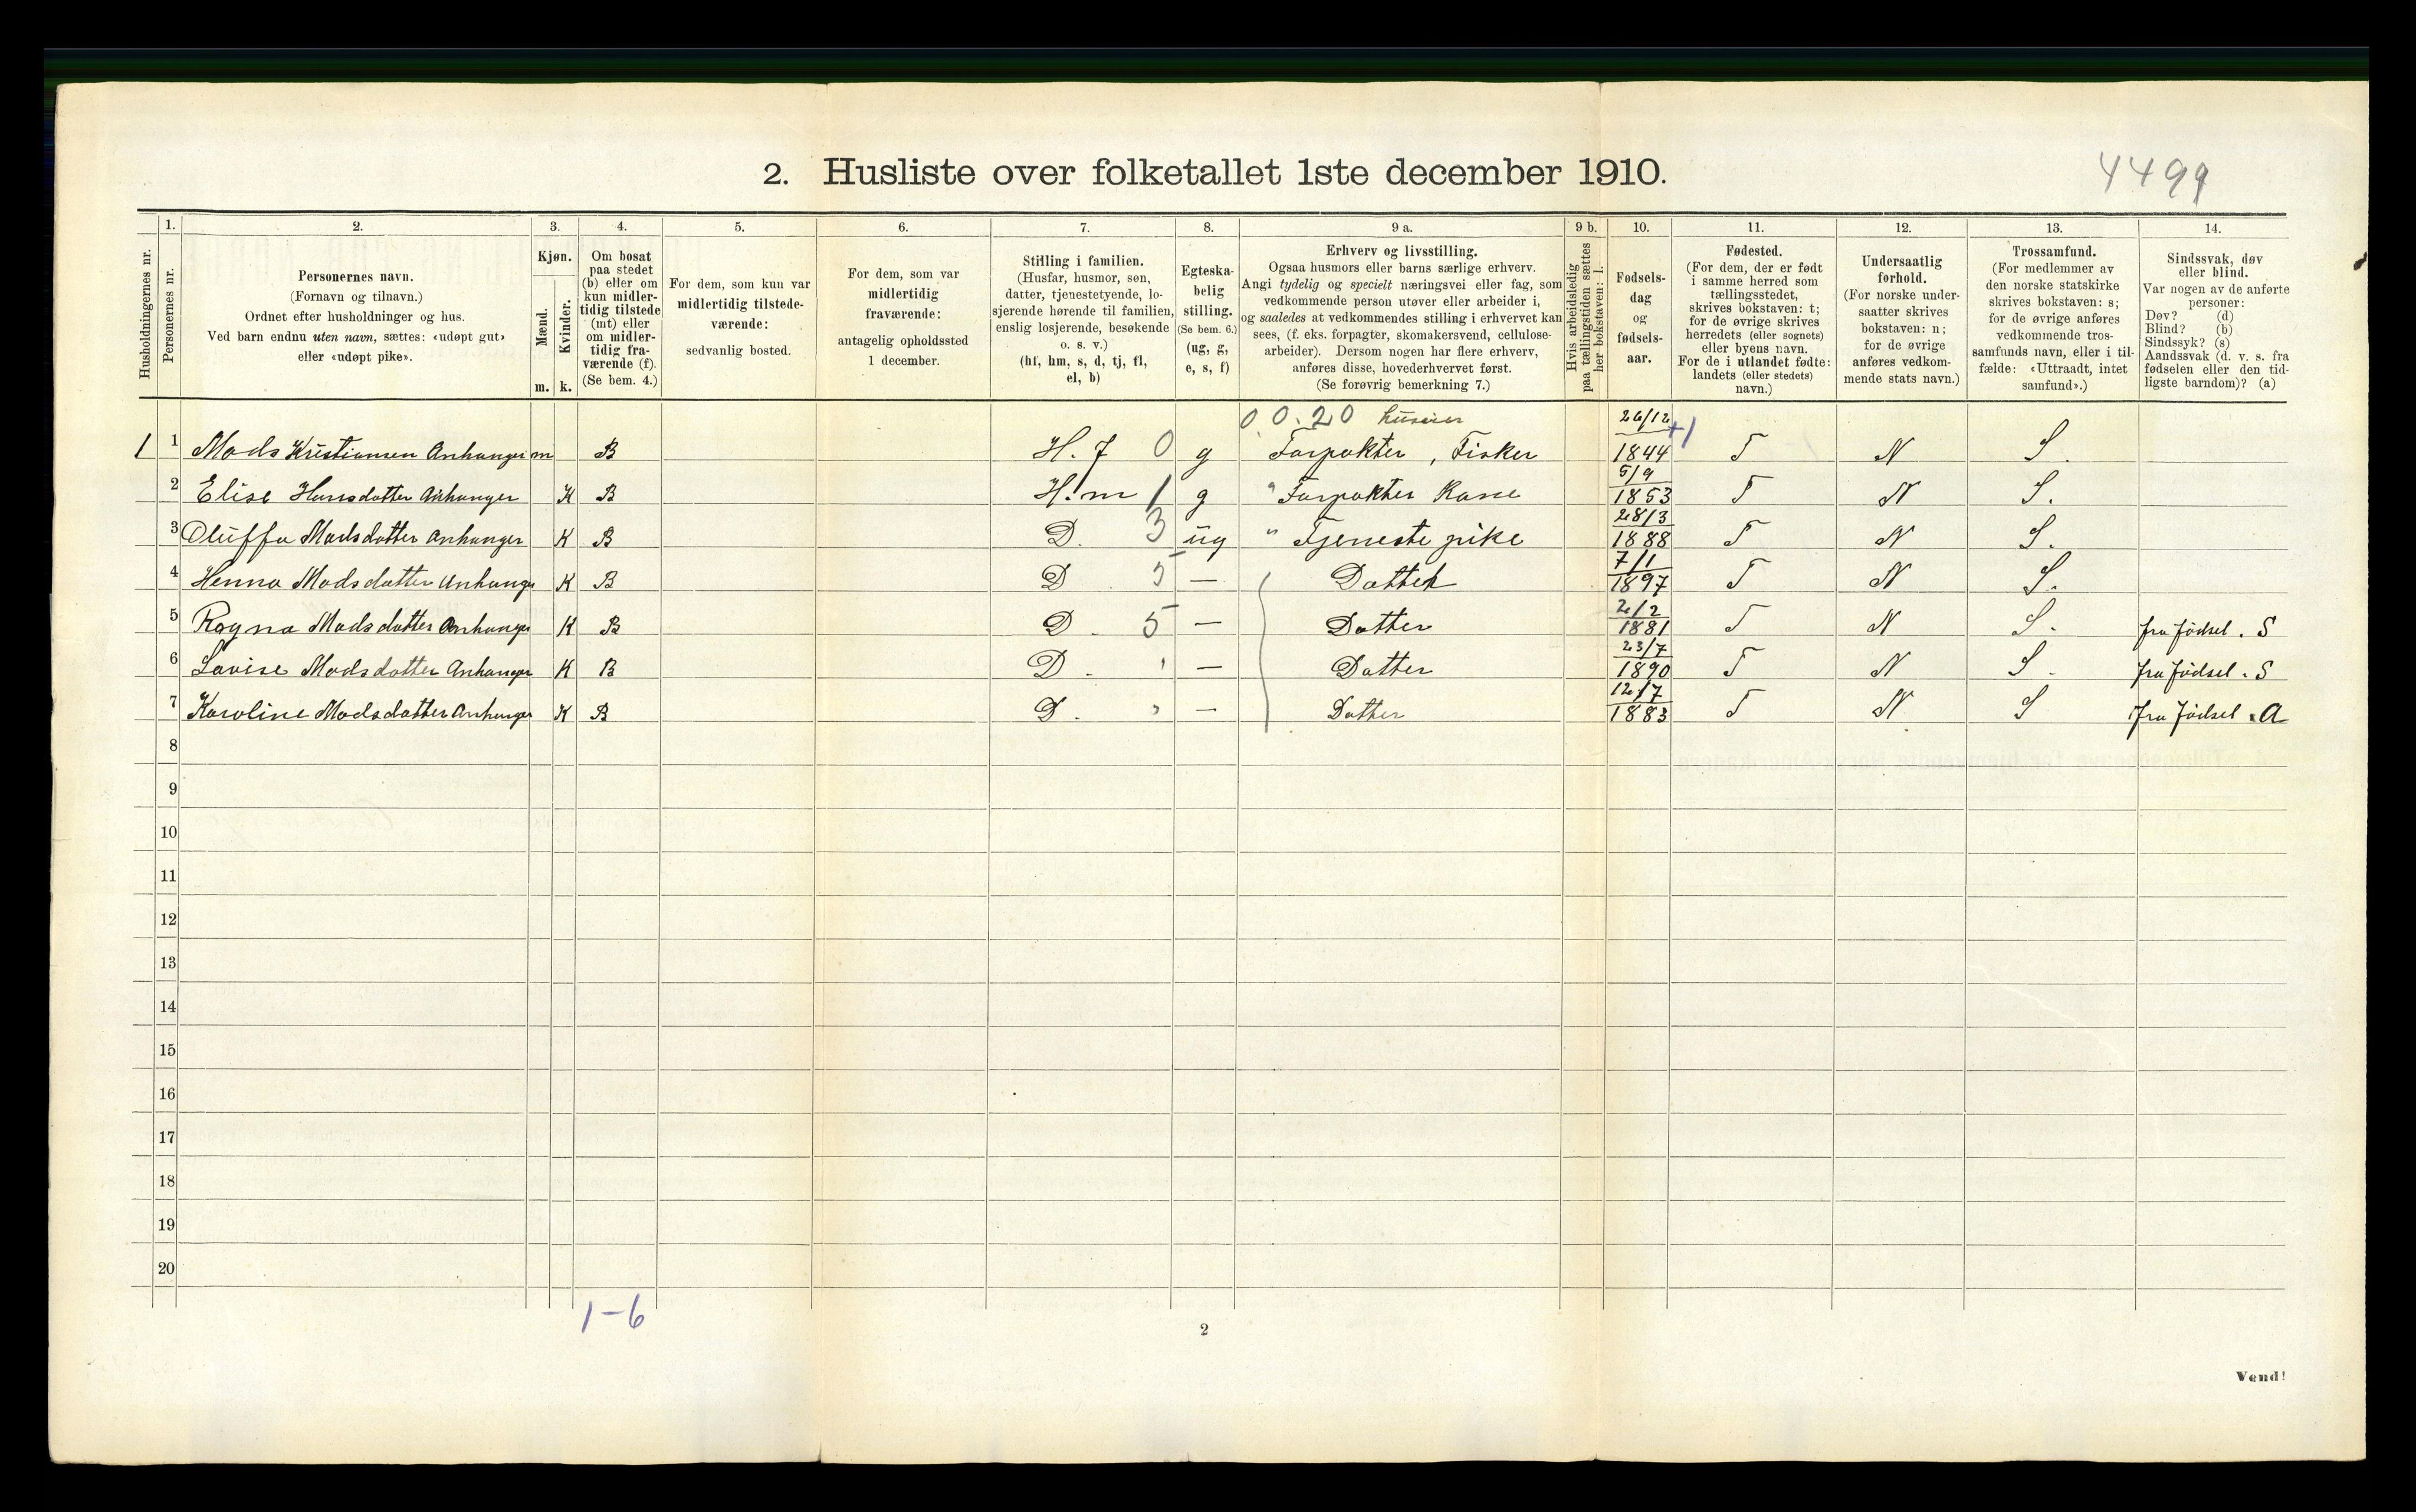 2. Husliste over folketallet 1ste december 1910.
4499
Husholdningernes nr.
1.
Personernes nr.
2.
Personernes navn.
(Fornavn og tilnavn.)
Ordnet efter husholdninger og hus.
Ved barn endnu uten navn, sættes: «udøpt gut»
eller «udøpt pike».
3.
Kjøn.
Mænd.
Kvinder.
m. k.
4.
Om bosat
paa stedet
(b) eller om
kun midler-
tidig tilstede
(mt) eller
om midler-
tidig fra-
værende (f).
(Se bem. 4.)
5.
For dem, som kun var
midlertidig tilstede-
værende:
sedvanlig bosted.
6.
For dem, som var
midlertidig
fraværende:
antagelig opholdssted
1 december.
7.
Stilling i familien.
(Husfar, husmor, søn,
datter, tjenestetyende, lo-
sjerende hørende til familien,
enslig losjerende, besøkende
o. s. v.)
(hf, hm, s, d, tj, fl,
el, b)
8.
Egteska-
belig
stilling.
(Se bem. 6.)
(ug, g,
e, s, f)
9 a.
Erhverv og livsstilling.
Ogsaa husmors eller barns særlige erhverv.
Angi tydelig og specielt næringsvei eller fag, som
vedkommende person utøver eller arbeider i,
og saaledes at vedkommendes stilling i erhvervet kan
sees, (f. eks. forpagter, skomakersvend, cellulose-
arbeider). Dersom nogen har flere erhverv,
anføres disse, hovederhvervet først.
(Se forøvrig bemerkning 7.)
9 b.
Hvis arbeidsledig
paa tællingstiden sættes
her bokstaven: l.
10.
Fødsels-
dag
og
fødsels-
aar.
11.
Fødested.
(For dem, der er født
i samme herred som
tællingsstedet,
skrives bokstaven: t;
for de øvrige skrives
herredets (eller sognets)
eller byens navn.
For de i utlandet fødte:
landets (eller stedets)
navn.)
12.
Undersaatlig
forhold.
(For norske under-
saatter skrives
bokstaven: n;
for de øvrige
anføres vedkom-
mende stats navn.)
13.
Trossamfund.
(For medlemmer av
den norske statskirke
skrives bokstaven: s;
for de øvrige anføres
vedkommende tros-
samfunds navn, eller i til-
fælde: «Uttraadt, intet
samfund».)
14.
Sindssvak, døv
eller blind.
Var nogen av de anførte
personer:
Døv? (d)
Blind? (b)
Sindssyk? (s)
Aandssvak (d. v. s. fra
fødselen eller den tid-
ligste barndom)? (a)
0 0.20 huseier 26/12 +1
1 1 Mads Kristiansen Anhanger m B H. f 0 g Forpakter, Fisker 1844 T N S.
5/9
2 Elise Hansdatter Anhanger K B H. m 1 g " Forpakter Kone 1853 T N S.
28/3
3 Oluffa Madsdatter Anhanger K B D. 3 ug " Tjeneste pike 1888 T N S.
7/1
4 Henna Madsdatter Anhanger K B D. 5 — Datter 1897 T N S.
2/2
5 Ragna Madsdatter Anhanger K B D. 5 — Datter 1881 T N S. fra fødsel. S
23/7
6 Lovise Madsdatter Anhanger K B D. " — Datter 1890 T N S. fra fødsel. S
12/7
7 Karoline Madsdatter Anhanger K B D. " — Datter 1883 T N S fra fødsel. A
8
9
10
11
12
13
14
15
16
17
18
19
20
1-6
2
Vend!